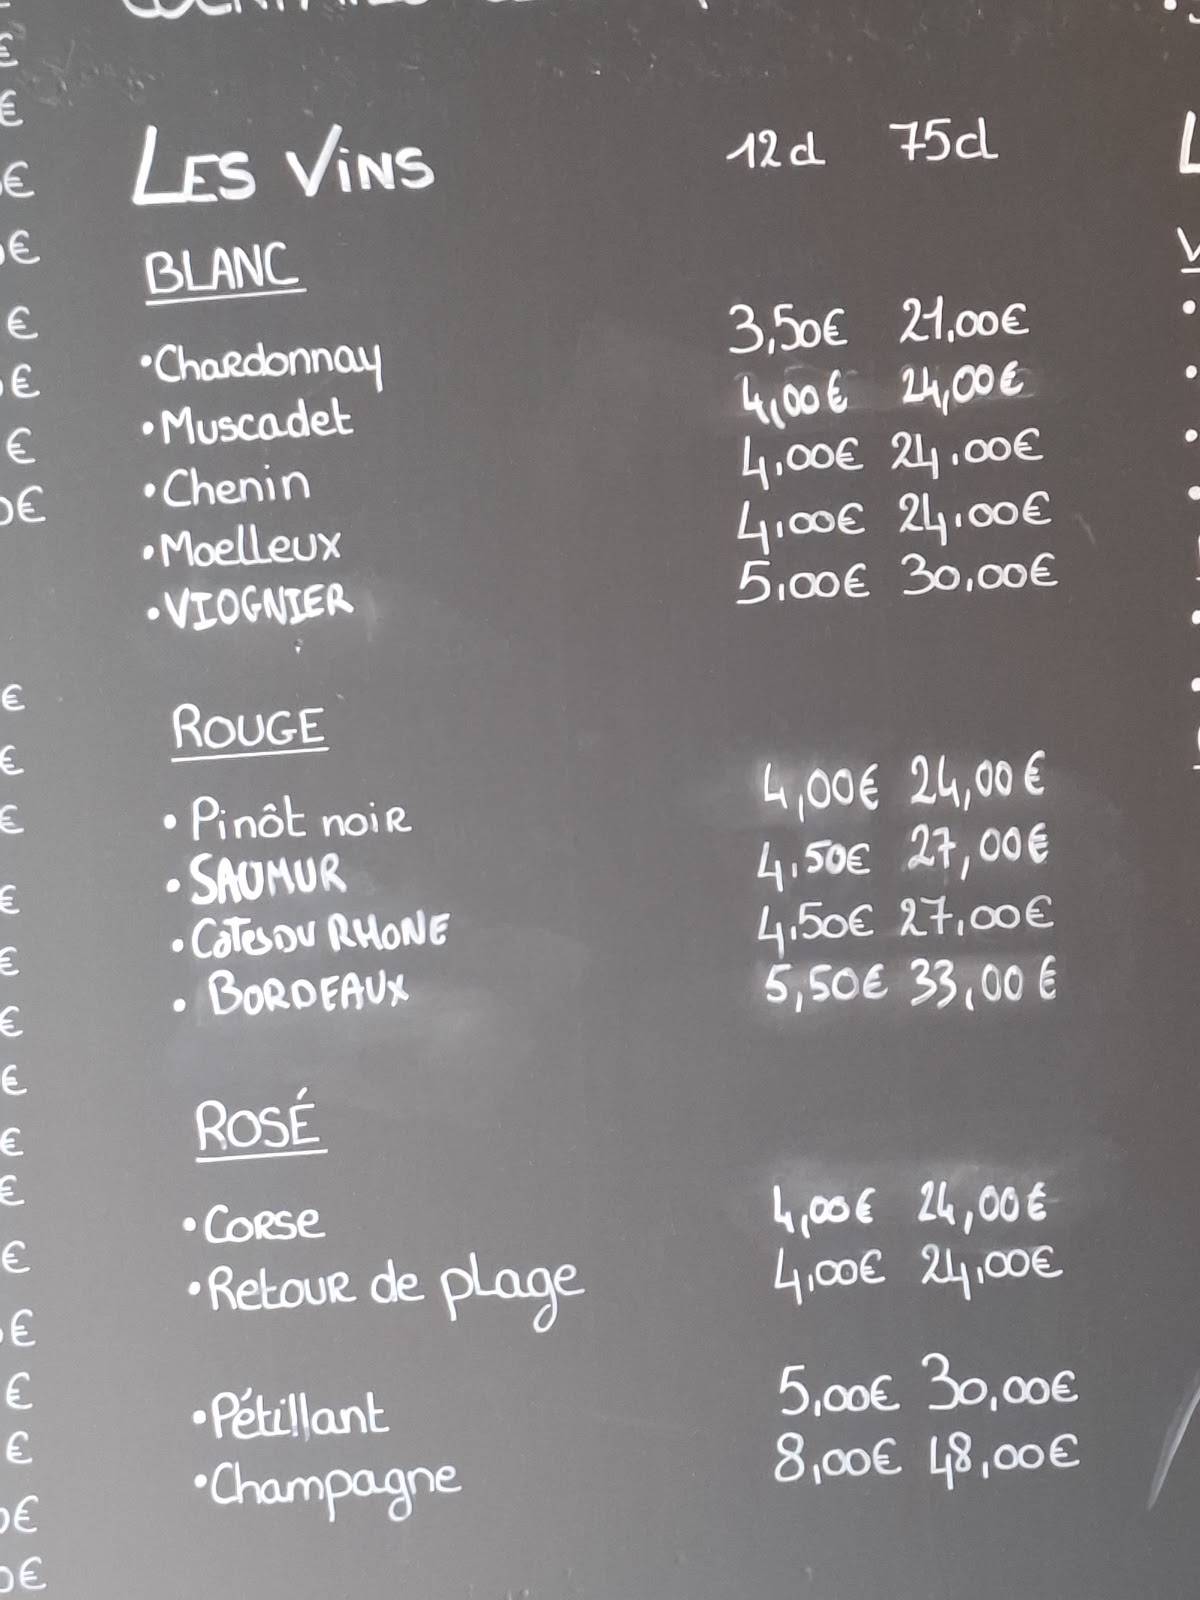 LES ViNS 12cl 75cl
BLANC
•Chardonnay 3,50€ 21,00€
•Muscadet 4,00€ 24,00€
•Chenin 4,00€ 24,00€
•Moelleux 4,00€ 24,00€
•VIOGNIER 5,00€ 30,00€
ROUGE
•Pinôt noir 4,00€ 24,00€
•SAUMUR 4,50€ 27,00€
•CôTES DU RHONE 4,50€ 27,00€
•BORDEAUX 5,50€ 33,00€
ROSÉ
•Corse 4,00€ 24,00€
•Retour de plage 4,00€ 24,00€
•Pétillant 5,00€ 30,00€
•Champagne 8,00€ 48,00€